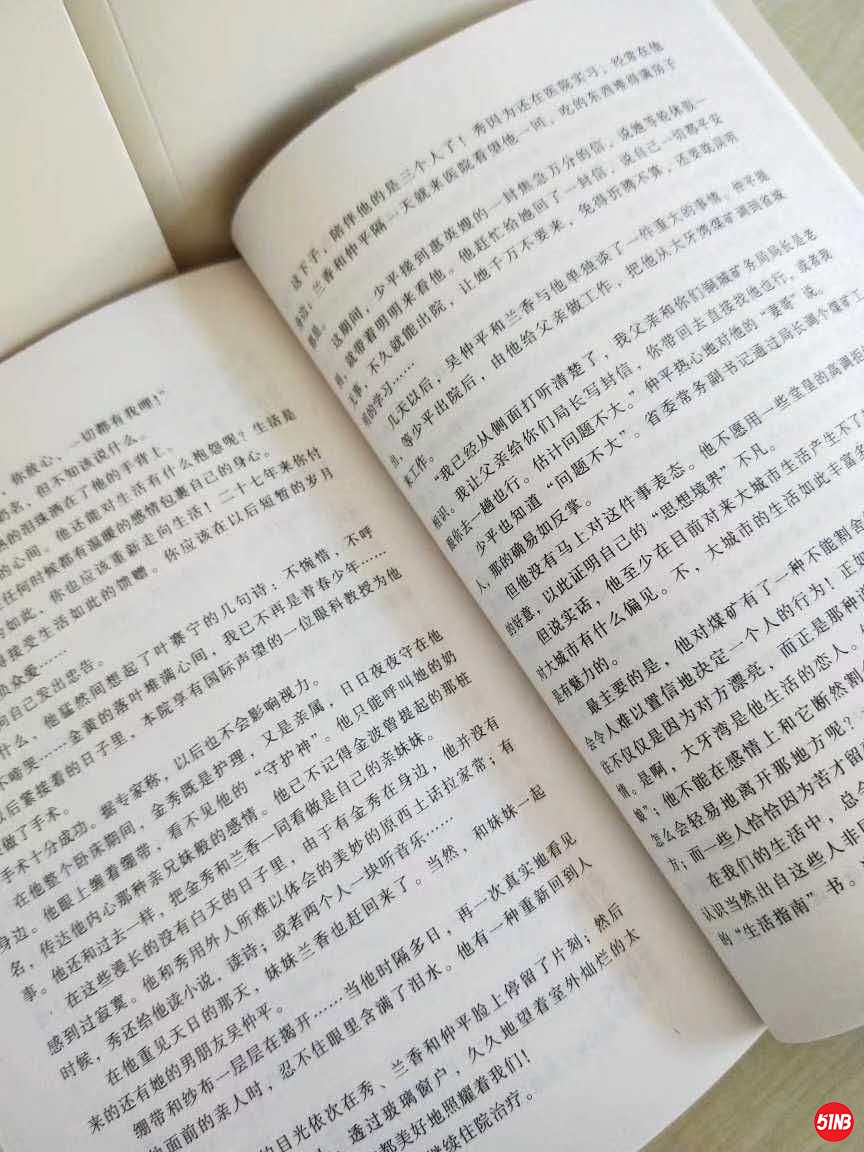 ，你放心，一切都有我哩！”
奶名，但不知该说什么。
的泪珠洒在了他的手背上。
的心间。他还能对生活有什么抱怨呢？生活是
在任何时候都有温暖的感情包裹自己的身心。
的如此，你也应该重新走向生活！二十七年来你付
得接受生活如此的馈赠。你应该在以后短暂的岁月
负众爱……
向自己发出忠告。
什么，他猛然间想起了叶赛宁的几句诗：不惋惜，不呼
不啼哭……金黄的落叶堆满心间，我已不再是青春少年……
以后紧接着的日子里，本院享有国际声望的一位眼科教授为他
做了手术。
手术十分成功。据专家称，以后也不会影响视力。
在他整个卧床期间，金秀既是护理，又是亲属，日日夜夜守在他
身边。他眼上缠着绷带，看不见他的“守护神”。他只能呼叫她的奶
名，传达他内心那种亲兄妹般的感情。他已不记得金波曾提起的那桩
事。他还和过去一样，把金秀和兰香一同看做是自己的亲妹妹。
在这些漫长的没有白天的日子里，由于有金秀在身边，他并没有
感到过寂寞。他和秀用外人所难以体会的美妙的原西土话拉家常；有
时候，秀还给他读小说，读诗；或者两个人一块听音乐……
在他重见天日的那天，妹妹兰香也赶回来了。当然，和妹妹一起
来的还有她的男朋友吴仲平。
绷带和纱布一层层在揭开……当他时隔多日，再一次真实地看见
面前的亲人时，忍不住眼里含满了泪水。他有一种重新回到人
的目光依次在秀、兰香和仲平脸上停留了片刻；然后
，透过玻璃窗户，久久地望着室外灿烂的太
都美好地照耀着我们！
继续住院治疗。
这下子，陪伴他的是三个人了！秀因为还在医院实习，经常在他
身边；兰香和仲平隔一天就来医院看望他一回，吃的东西堆得满房子
都是。
这期间，少平接到惠英嫂的一封焦急万分的信，说她等轮休假一
到，就带着明明来看他。他赶忙给她回了一封信，说自己一切都平安
无事，不久就能出院，让她千万不要来，免得折腾不算，还要耽误明
明的学习……
几天以后，吴仲平和兰香与他单独谈了一件重大的事情。仲平提
出，等少平出院后，由他给父亲做工作，把他从大牙湾煤矿调到省城
来工作。
“我已经从侧面打听清楚了，我父亲和你们铜城矿务局局长是老
相识。我让父亲给你们局长写封信，你带回去直接找他也行，或者我
跟你去一趟也行。估计问题不大。”仲平热心地对他的“妻哥”说。
少平也知道“问题不大”。省委常务副书记通过局长调个煤矿工
人，那的确易如反掌。
但他没有马上对这件事表态。他不愿用一些堂皇的高调拒
的好意，以此证明自己的“思想境界”不凡。
但说实话，他至少在目前对来大城市生活产生不了
对大城市有什么偏见。不，大城市的生活如此丰富多
是有魅力的。
最主要的是，他对煤矿有了一种不能割舍
会令人难以置信地决定一个人的行为！正如
往不仅仅是因为对方漂亮，而正是那种
情。是啊，大牙湾是他生活的恋人。
；他不能在感情上和它断然割
怎么会轻易地离开那地方呢？
方；而一些人恰恰因为苦才留
在我们的生活中，总会
认识当然出自这些人非
的“生活指南”书。
51NB